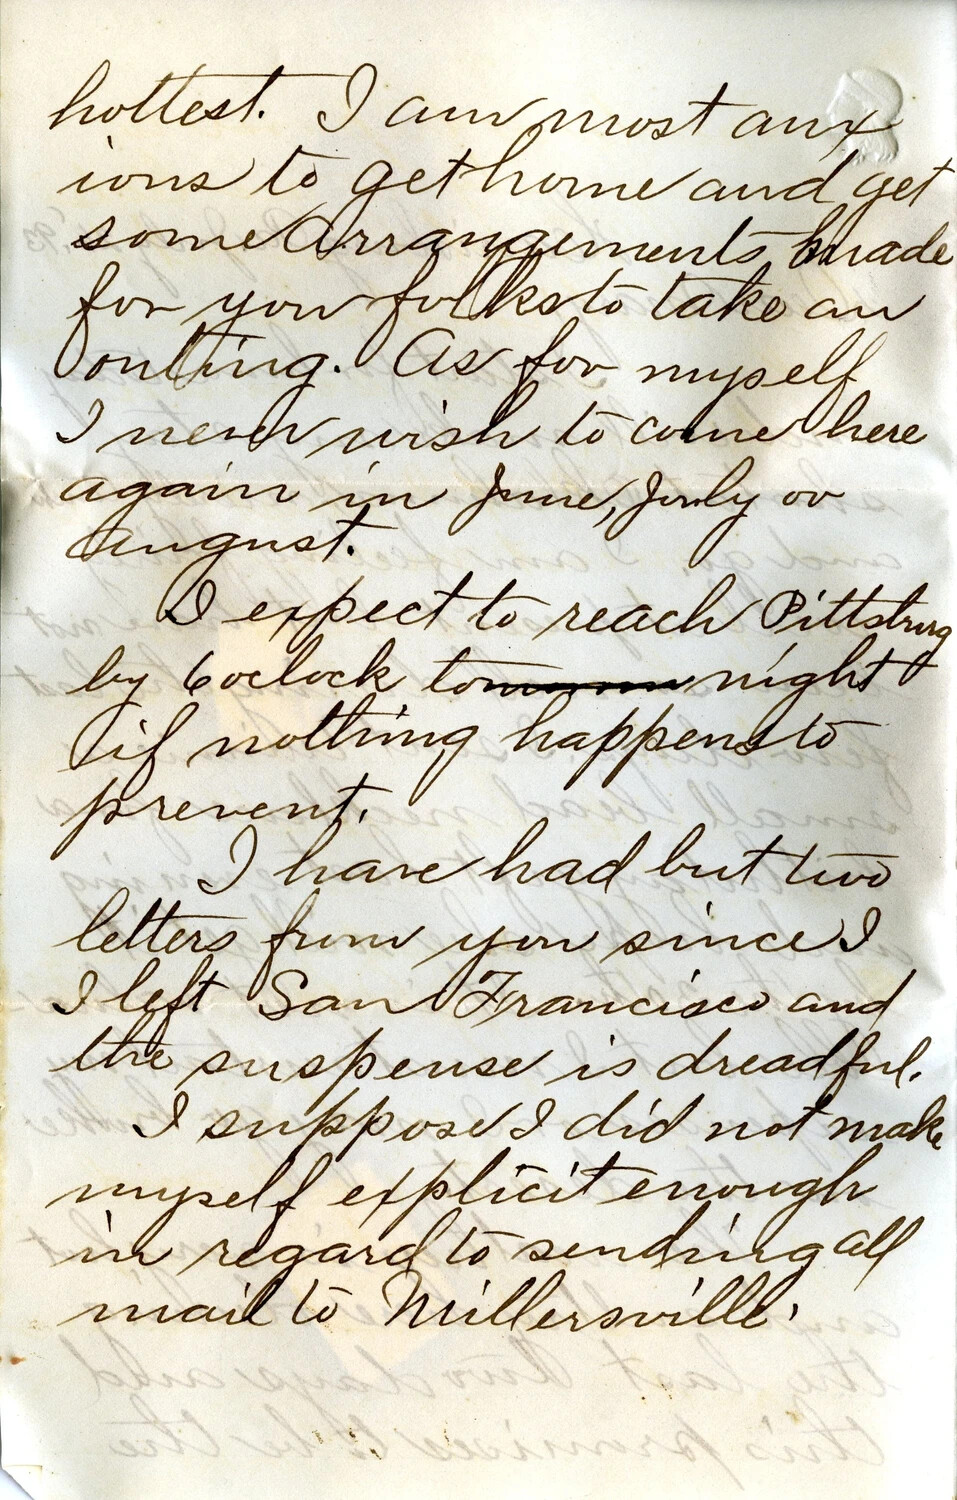 hottest. I am most anx
ious to get home and get
some Arrangements made
for you folks to take an
outing. As for myself
I never wish to come here
again in June, July or
August.
I expect to reach Pittsburg
by 6 oclock to night
if nothing happens to
prevent.
I have had but two
letters from you since I
I left San Francisco and
the suspense is dreadful.
I suppose I did not make
myself explicit enough
in regard to sending all
mail to Millersville.